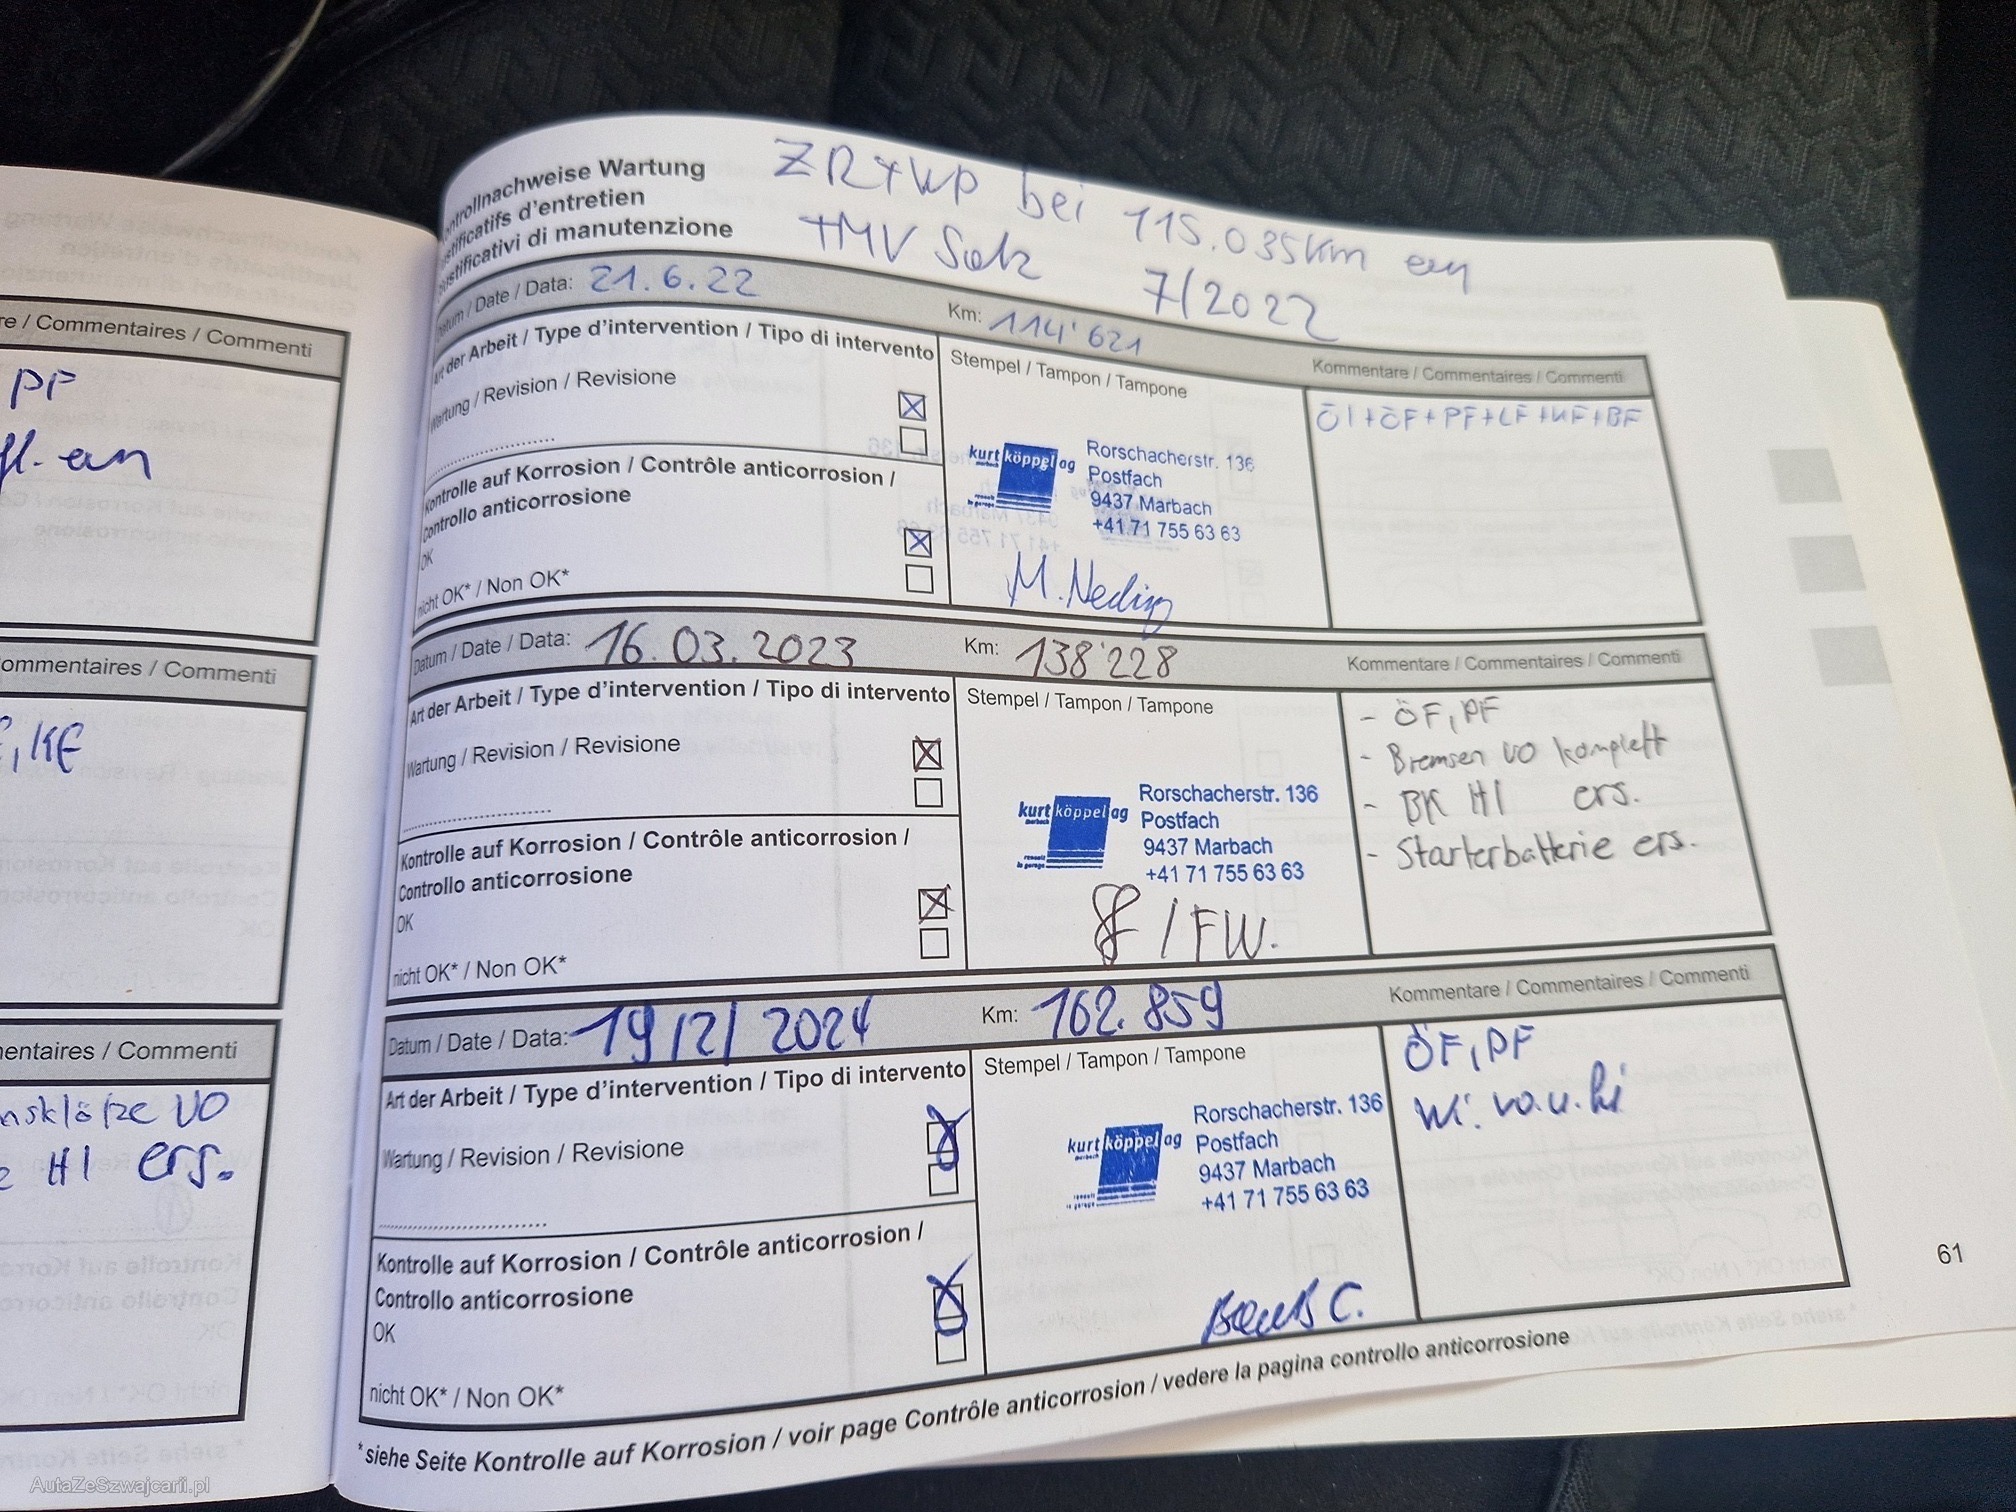 re / Commentaires / Commenti
PF
fl. ern
ommentaires / Commenti
, KF
nentaires / Commenti
nsklötze VO
HI ers.
ntrollnachweise Wartung
stificatifs d'entretien
ustificativi di manutenzione
ZR+WP bei 115.035km ern
+MV Satz 7/2022
Datum / Date / Data: 21.6.22
Km: 114'621
Kommentare / Commentaires / Commenti
Art der Arbeit / Type d'intervention / Tipo di intervento
Stempel / Tampon / Tampone
Öl+ÖF+PF+LF+KF+BF
Wartung / Revision / Revisione
Kontrolle auf Korrosion / Contrôle anticorrosion /
Controllo anticorrosione
OK
nicht OK* / Non OK*
kurt köppel ag
marbach
Rorschacherstr. 136
Postfach
9437 Marbach
+41 71 755 63 63
Datum / Date / Data: 16.03.2023
Km: 138'228
Kommentare / Commentaires / Commenti
Art der Arbeit / Type d'intervention / Tipo di intervento
Stempel / Tampon / Tampone
- ÖF, PF
- Bremsen VO komplett
- BK HI ers.
- Starterbatterie ers.
Wartung / Revision / Revisione
Kontrolle auf Korrosion / Contrôle anticorrosion /
Controllo anticorrosione
OK
nicht OK* / Non OK*
kurt köppel ag
marbach
Rorschacherstr. 136
Postfach
9437 Marbach
+41 71 755 63 63
/ FW.
Datum / Date / Data: 19/2/2024
Km: 162.859
Kommentare / Commentaires / Commenti
Art der Arbeit / Type d'intervention / Tipo di intervento
Stempel / Tampon / Tampone
ÖF, PF
Wi. vo. u. hi
Wartung / Revision / Revisione
Kontrolle auf Korrosion / Contrôle anticorrosion /
Controllo anticorrosione
OK
nicht OK* / Non OK*
kurt köppel ag
marbach
Rorschacherstr. 136
Postfach
9437 Marbach
+41 71 755 63 63
*siehe Seite Kontrolle auf Korrosion / voir page Contrôle anticorrosion / vedere la pagina controllo anticorrosione
61
AutaZeSzwajcarii.pl